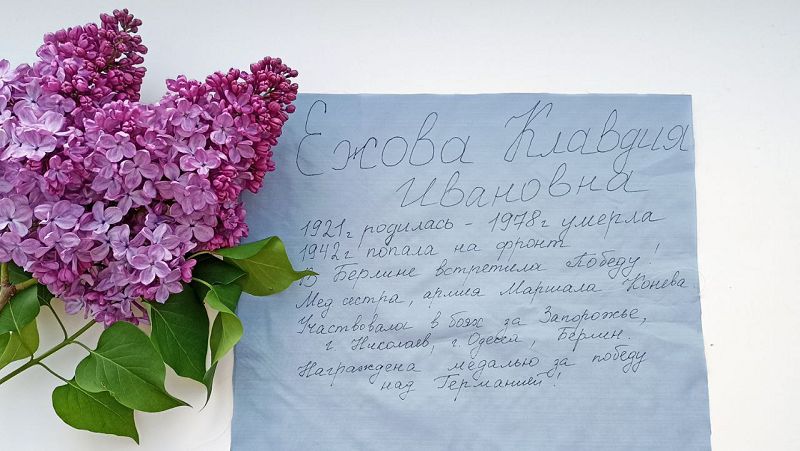 Ежова Клавдия
Ивановна
1921г родилась - 1978г умерла
1942г попала на фронт
В Берлине встретила Победу!
Мед сестра, армия Маршала Конева
Участвовала в боях за Запорожье,
г Николаев, г. Одесса, Берлин.
Награждена медалью за победу
над Германией!